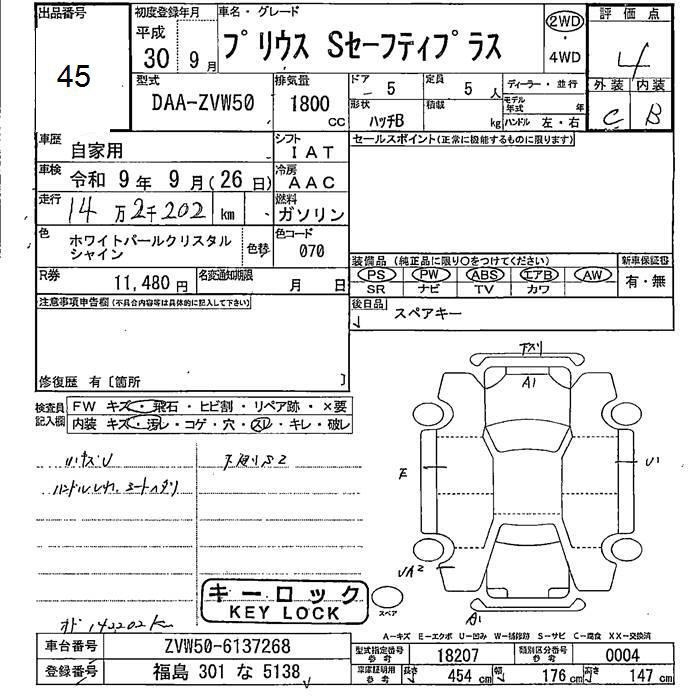 出品番号
45
初度登録年月
平成
30 9月
車名・グレード
プリウス Sセーフティプラス
2WD
・
4WD
評価点
4
外装 内装
C B
型式
DAA-ZVW50
排気量
1800
CC
ドア
5
定員
5 人
ディーラー・並行
形状
ハッチB
積載
kg
モデル年式 年
ハンドル 左・右
車歴
自家用
シフト
IAT
車検
令和 9年 9月(26日)
冷房
AAC
走行
14万2千202 km
燃料
ガソリン
色
ホワイトパールクリスタル
シャイン
色替
色コード
070
R券
11,480円
名変通知期限
月 日
セールスポイント(正常に機能するものに限ります)
装備品(純正品に限り○をつけてください)
PS PW ABS エアB AW
SR ナビ TV カワ
新車保証書
有・無
後日品
スペアキー
注意事項申告欄(不具合内容等は具体的に記入して下さい)
修復歴 有〔箇所 〕
検査員記入欄
FW キズ・飛石・ヒビ割・リペア跡・×要
内装 キズ・汚レ・コゲ・穴・スレ・キレ・破レ
下スリ
A1
A1
オド 142202km
キーロック
KEY LOCK
スペア
A-キズ E-エクボ U-凹み W-補修跡 S-サビ C-腐食 XX-交換済
車台番号
ZVW50-6137268
登録番号
福島 301 な 5138
型式指定番号
参考
18207
類別区分番号
参考
0004
車庫証明用
参考
長さ
454 cm
幅
176 cm
高さ
147 cm